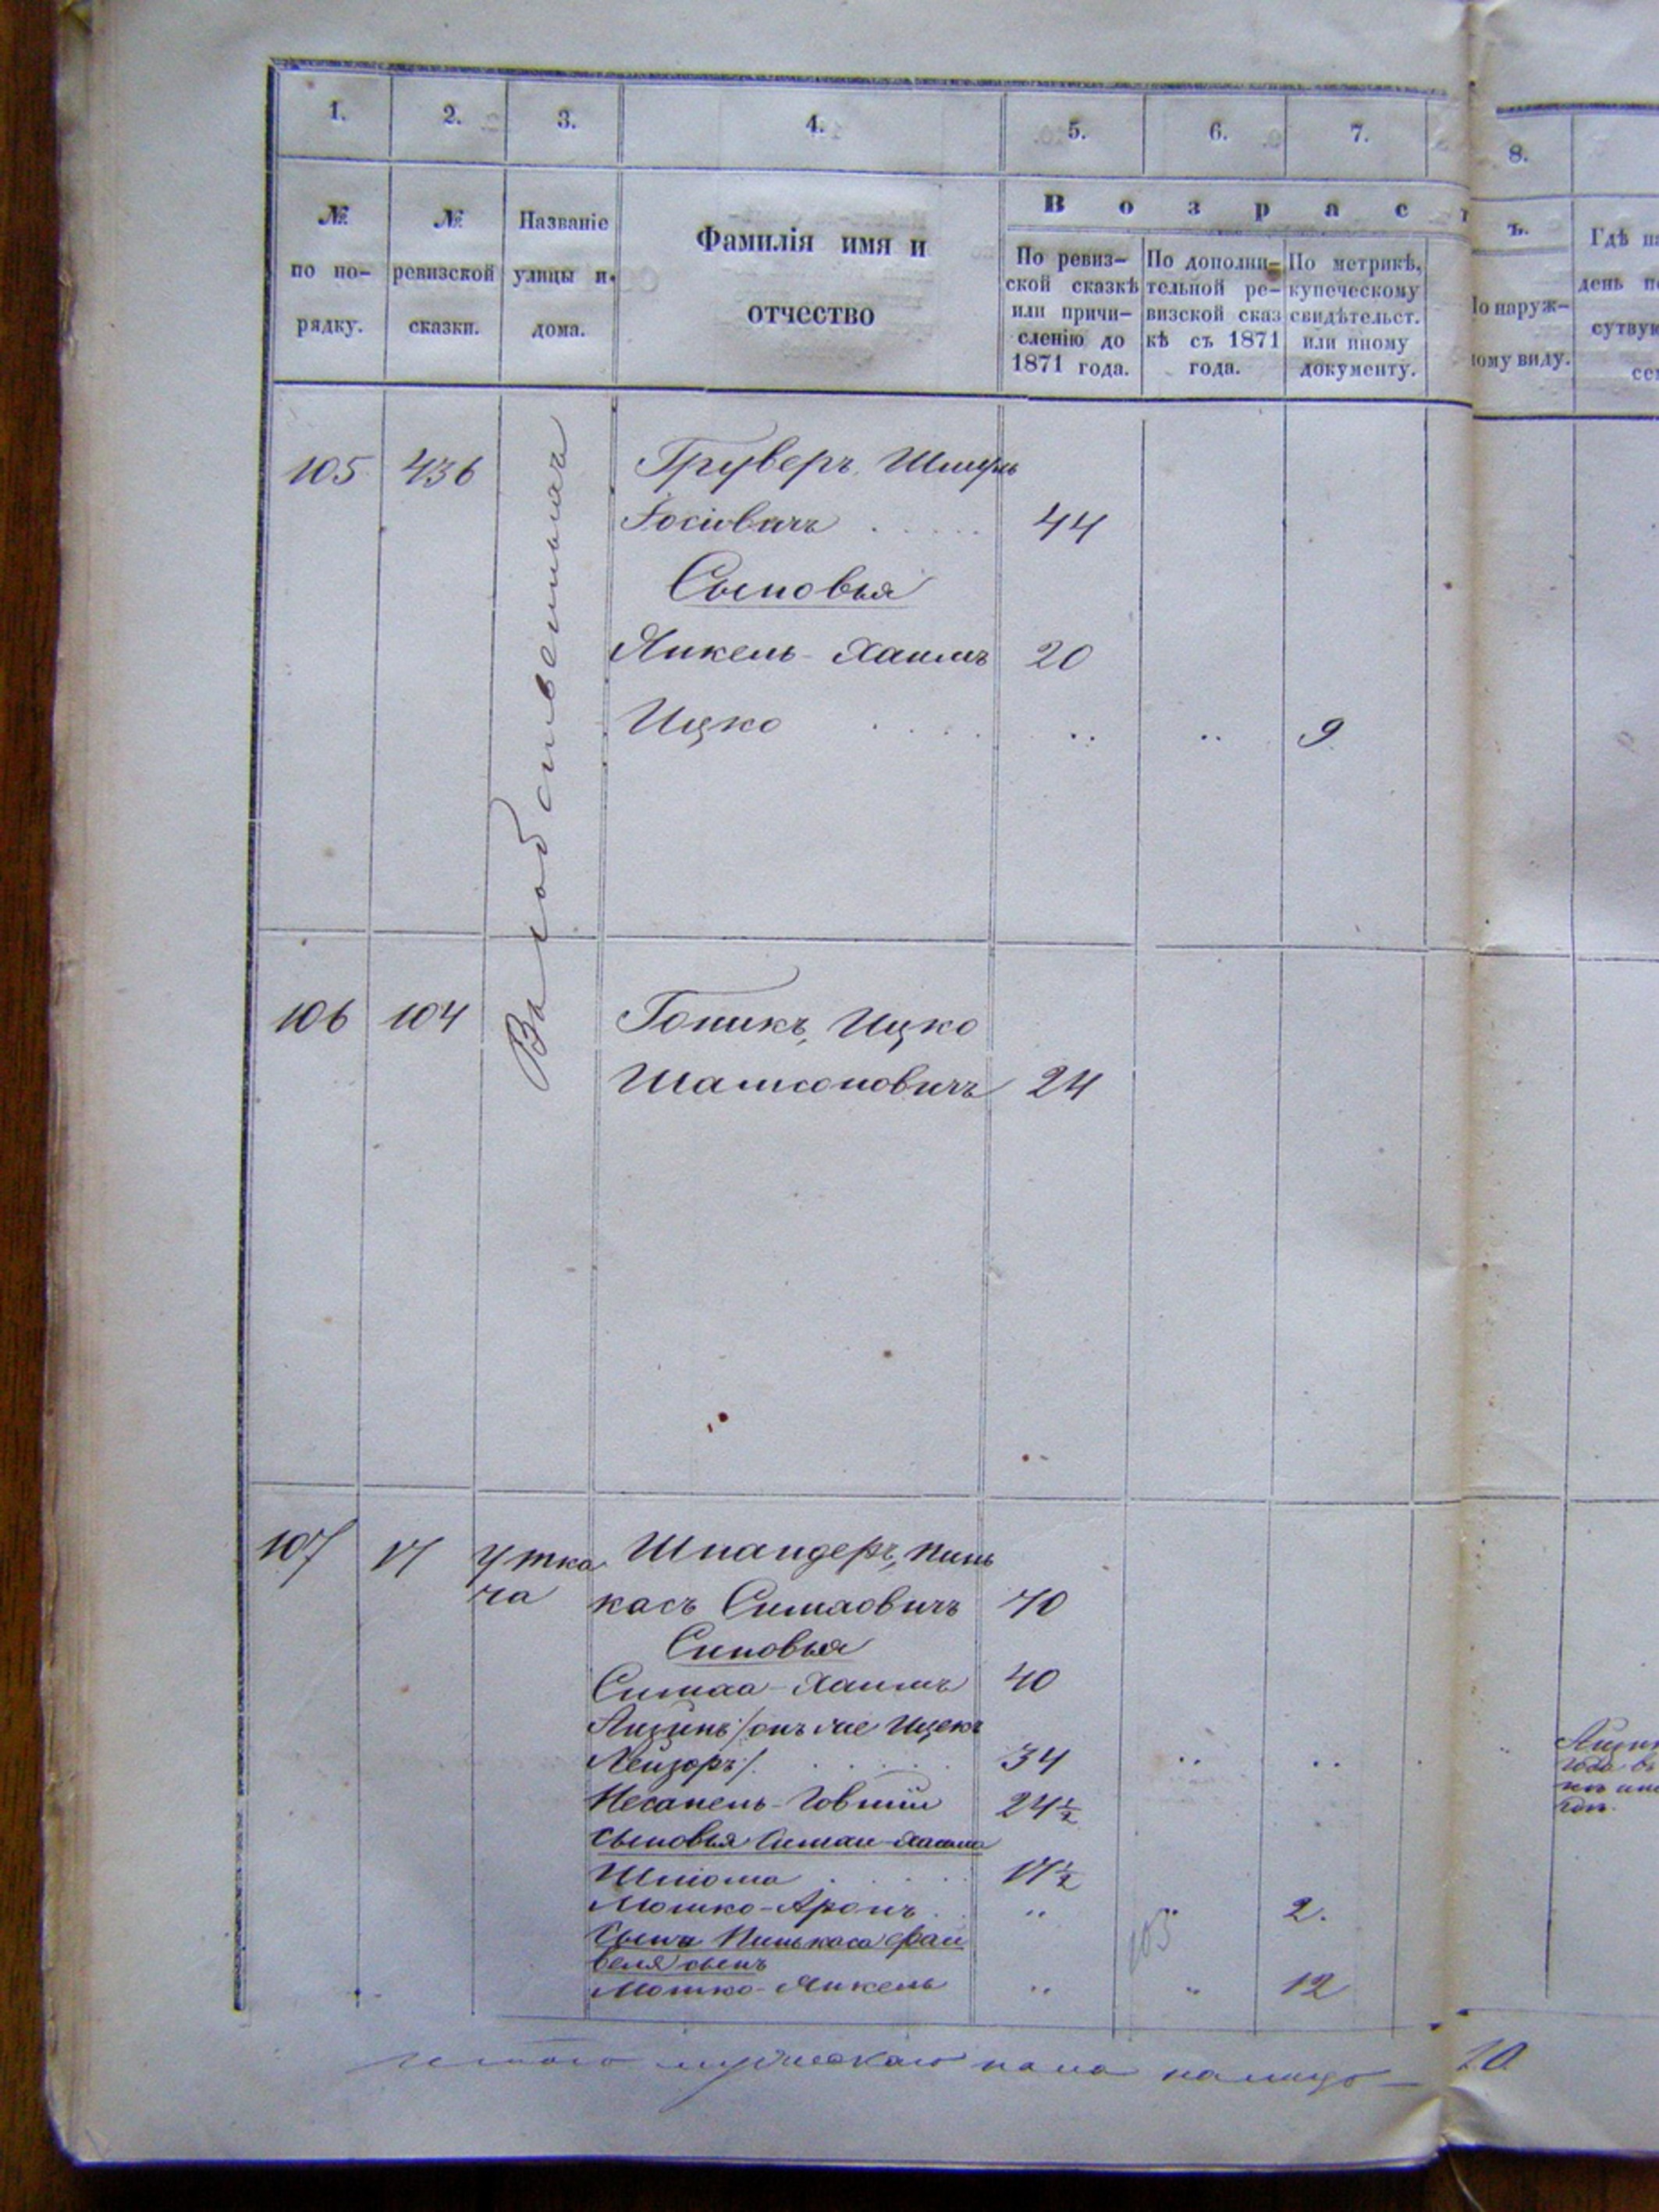 1. 2. 3. 4. 5. 6. 7. 8.
№ по порядку.
№ ревизской сказки.
Названіе улицы и дома.
Фамилія имя и отчество
В о з р а с т ъ.
По ревиз-
ской сказкѣ
или причи-
сленію до
1871 года.
По дополни-
тельной ре-
визской сказ
кѣ съ 1871
года.
По метрикѣ,
купеческому
свидѣтельст.
или иному
документу.
По наруж-
ному виду.
Гдѣ
день
105 436 Груверъ Шмуль
Іосіовичъ 44
Сыновья
Янкель-Хаимъ 20
Ицко .. .. 9
106 104 Гопикъ, Ицко
Шамсоновичъ 24
107 17 Утка Шпандеръ, Пинь
ча касъ Симаовичъ 70
Сыновья
Симаа-Хаимъ 40
Лейзоръ/. 34 .. ..
24½
Сыновья Симаи-Хаима
Шлiома 17½
Мошко-Аронъ .. .. 2.
Сына Пинькаса Фай
веля сынъ
Мошко-Янкель .. .. 12
103
мужескаго пола налицо 10